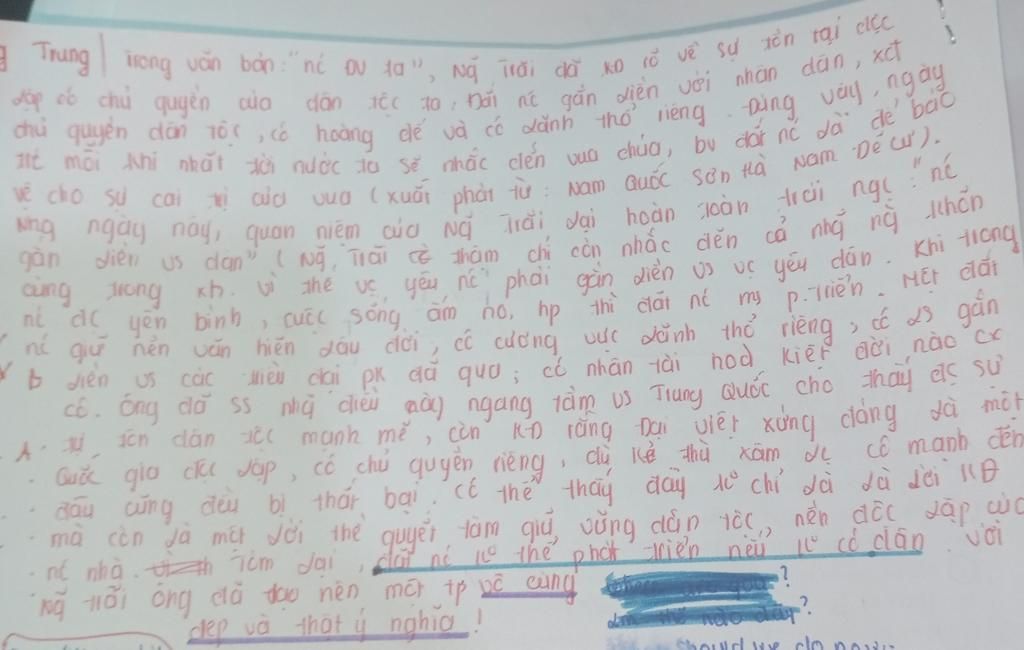 g Trung | Trong văn bản: "nc ĐV ta", Ng Trãi đã KĐ rõ về sự tồn tại độc
lập có chủ quyền của dân tộc ta. Đất nc gắn liền với nhân dân, xct
chủ quyền dân tộc, có hoàng đế và có lãnh thổ riêng. Đúng vậy, ngày
xưc mỗi khi nhắc tới nước ta sẽ nhắc đến vua chúa, bv đất nc là để bảo
vệ cho sự cai trị của vua (xuất phát từ: Nam Quốc Sơn Hà Nam Đế Cư).
Nhg ngày nay, quan niệm của Ng Trãi lại hoàn toàn trái ngc: "nc
gắn liền vs dân" (Ng Trãi thậm chí còn nhắc đến cả nhg ng khốn
cùng trong xh. Vì thế vc yêu nc phải gắn liền vs vc yêu dân. Khi trong
nc đc yên bình, cuộc sống ấm no, hp thì đất nc ms p.triển. Một đất
nc giữ nền văn hiến lâu đời, có cương vực lãnh thổ riêng, có LS gắn
liền vs các triều đại PK đã qua; có nhân tài hod kiệt đời nào cx
có. Ông đã SS nhg điều này ngang tầm vs Trung Quốc cho thấy đc sự
tự tôn dân tộc mạnh mẽ, còn KĐ rằng Đại Việt xứng đáng là một
Quốc gia độc lập, có chủ quyền riêng, dù kẻ thù xâm lc có mạnh đến
đâu cũng đều bị thất bại. Có thể thấy đây ko chỉ là là lời KĐ
mà còn là một lời thề quyết tâm giữ vững dân tộc, nền độc lập của
nc nhà. Tóm lại, đất nc ko thể phát triển nếu ko có dân. Với
Ng Trãi ông đã tạo nên một tp vô cùng ?
đẹp và thật ý nghĩa! ?
should we do now